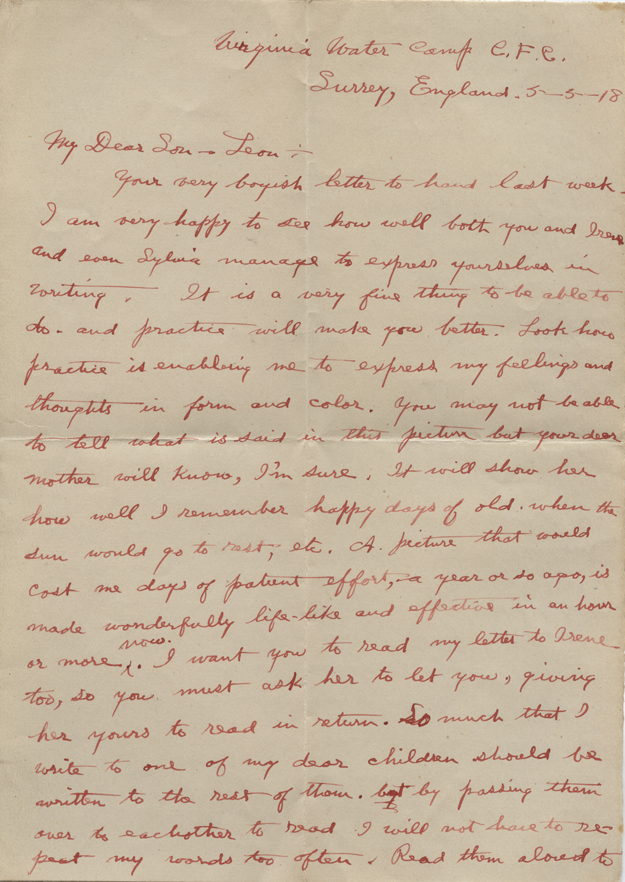 Virginia Water Camp C.F.C.
Surrey, England. 5-5-18
My Dear Son - Leon :-
Your very boyish letter to hand last week -
I am very happy to see how well both you and Irene
and even Sylvia manage to express yourselves in
writing. It is a very fine thing to be able to
do - and practice will make you better. Look how
practice is enabling me to express my feelings and
thoughts in form and color. You may not be able
to tell what is said in this picture but your dear
mother will know, I'm sure. It will show her
how well I remember happy days of old. when the
sun would go to rest, etc. A picture that would
cost me days of patient effort, - a year or so ago, is
made wonderfully life-like and effective in an hour
or more now. I want you to read my letter to Irene
too, so you must ask her to let you, giving
her yours to read in return. So much that I
write to one of my dear children should be
written to the rest of them. but by passing them
over to eachother to read I will not have to re-
peat my words too often. Read them aloud to